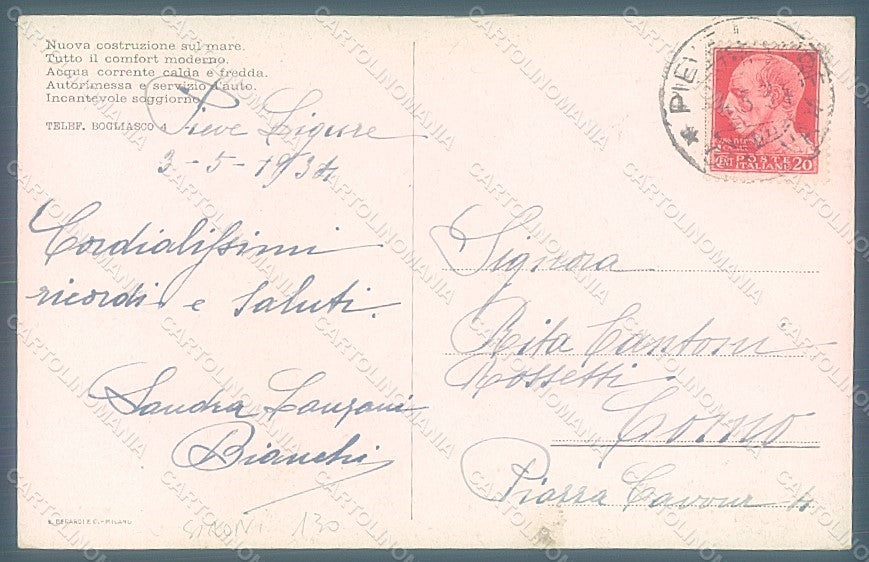 Nuova costruzione sul mare.
Tutto il comfort moderno.
Acqua corrente calda e fredda.
Autorimessa e servizio d'auto.
Incantevole soggiorno.
TELEF. BOGLIASCO 4
Pieve Ligure
3-5-1934
Cordialissimi
ricordi e saluti.
Sandra Canzani
Bianchi
PIEVE
POSTE
ITALIANE 20
Signora
Rita Cantoni
Rossetti
Como
Piazza Cavour 4
E C.-MILANO
130
CARTOLINOMANIA